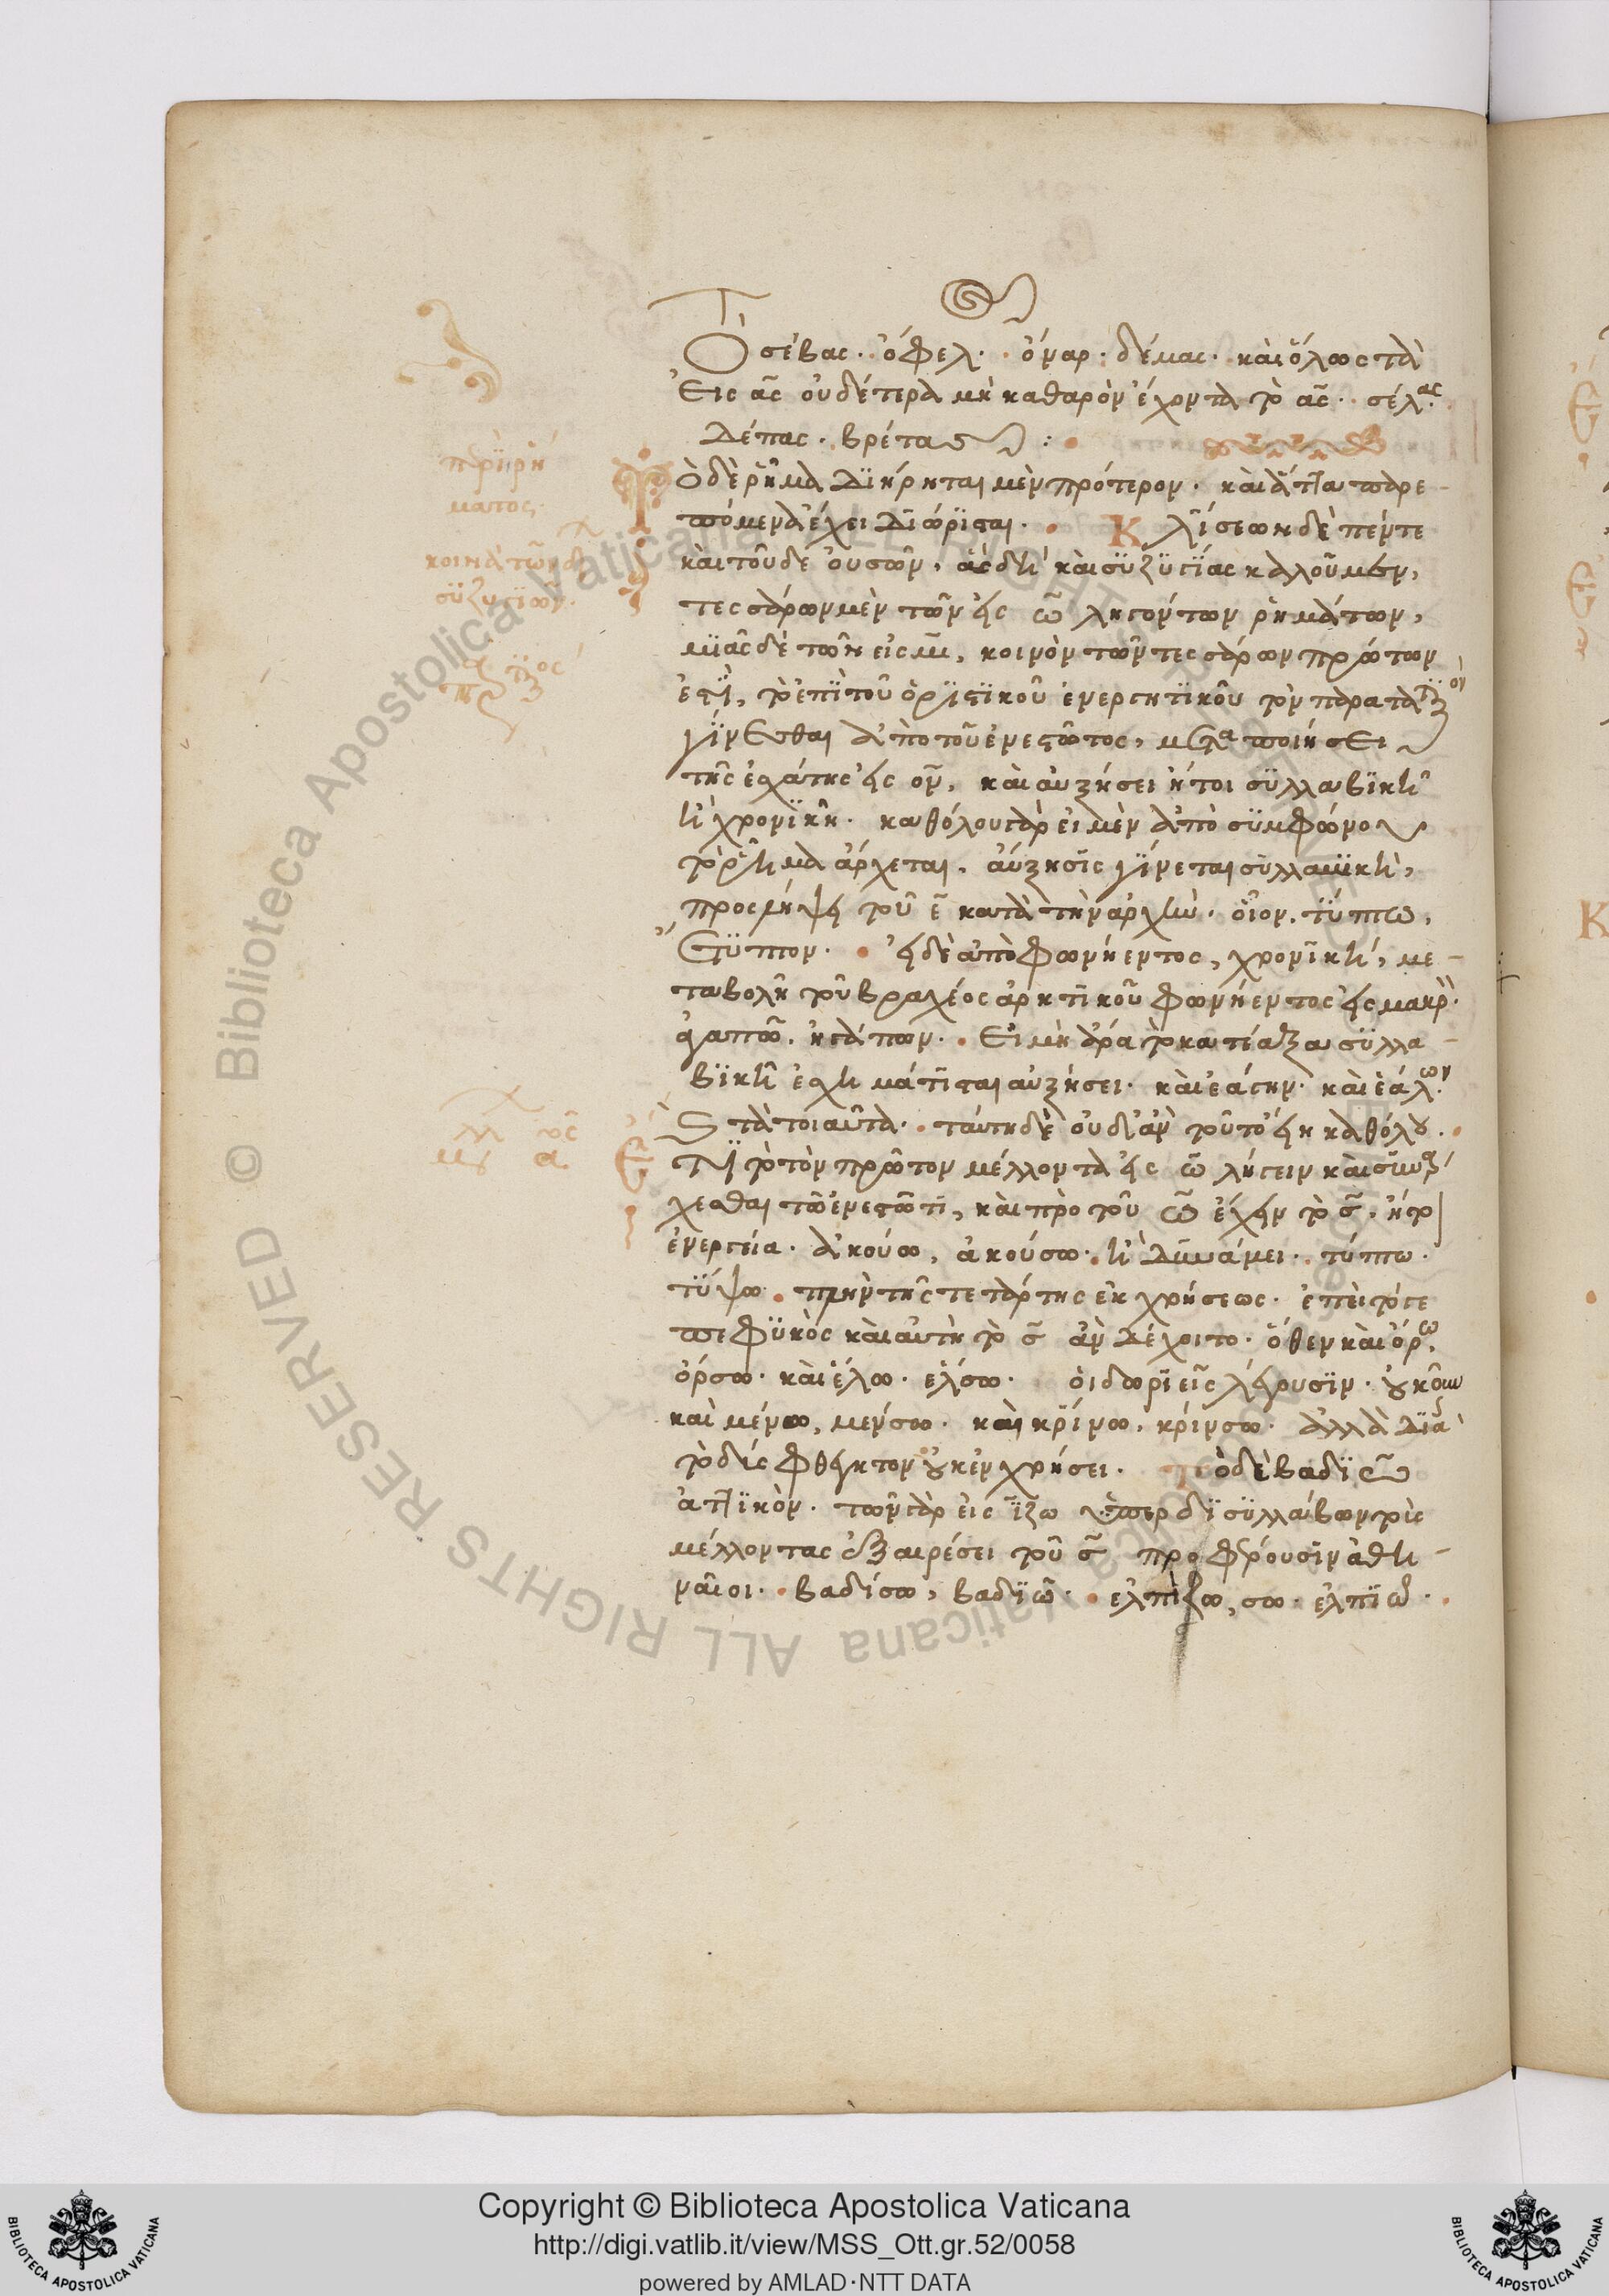 Τὸ σέβας. ὄφελ. ὄναρ. δέμας. καὶ ὅλως τὰ
εἰς ας οὐδέτερα μὴ καθαρὸν ἔχοντα τὸ ας. σέλας.
δέπας. βρέτας :
περὶ ῥή
ματος.
Τὸ δὲ ῥῆμα διήρηται μὲν πρότερον. καὶ ἅττα παρε-
πόμενα ἔχει διώρισται. Κλίσεων δὲ πέντε
κοινὰ τῶν δ
συζυγιῶν.
καὶ τοῦδε οὐσῶν, ἃς δὴ καὶ συζυγίας καλοῦμεν,
τεσσάρων μὲν τῶν εἰς ω ληγόντων ῥημάτων,
μιᾶς δὲ τῶν εἰς μι, κοινὸν τῶν τεσσάρων πρώτων
ἐστὶ, τὸ ἐπὶ τοῦ ὁριστικοῦ ἐνεργητικοῦ τὸν παρατατικὸν
γίνεσθαι ἀπὸ τοῦ ἐνεστῶτος, μεταποιήσει
τῆς ἐσχάτης εἰς ον, καὶ αὐξήσει ἤτοι συλλαβικῇ
ἢ χρονικῇ. καθόλου γὰρ εἰ μὲν ἀπὸ συμφώνου
τὸ ῥῆμα ἄρχεται, αὔξησις γίνεται συλλαβικὴ,
προσλήψει τοῦ ε κατὰ τὴν ἀρχὴν. οἷον. τύπτω,
ἔτυπτον. εἰ δὲ ἀπὸ φωνήεντος, χρονικὴ, με-
ταβολῇ τοῦ βραχέος ἀρκτικοῦ φωνήεντος εἰς μακρὸ.
ἀγαπῶ. ἠγάπων. Εἰ μὴ ἄρα τὸ κατέαξα συλλα-
βικῇ ἐσχημάτισται αὐξήσει. καὶ ἐάγην. καὶ ἑάλων
τὰ τοιαῦτα. ταύτῃ δὲ οὐδ' ἂν τοῦτο εἴη καθόλου.
Ἔτι τὸ τὸν πρῶτον μέλλοντα εἰς ω λήγειν καὶ συνάρ
χεσθαι τῶ ἐνεστῶτι, καὶ πρὸ τοῦ ω ἔχειν τὸ σ. ἤτοι
ἐνεργεία. ἀκούω, ἀκούσω. ἢ δυνάμει. τύπτω.
τύψω. πλὴν τῆς τετάρτης ἐκ χρήσεως. ἐπεὶ τόγε
πεφυκὸς καὶ αὐτὴ τὸ σ ἂν δέχοιτο. ὅθεν καὶ ὄρω,
ὄρσω. καὶ ἕλω. ἕλσω. οἱ δωριεῖς λέγουσιν. οὐκοῦν
καὶ μένω, μένσω. καὶ κρίνω, κρίνσω. ἀλλὰ διὰ
τὸ δύσφθεγκτον οὐκ ἐν χρήσει. τὸ δὲ βαδιῶ
ἀττικὸν. τῶν γὰρ εἰς ίζω ὑπὲρ δισύλλαβον τοὺς
μέλλοντας ἐξαιρέσει τοῦ σ προφέρουσιν ἀθη-
ναῖοι. βαδίσω, βαδιῶ. ἐλπίζω, σω. ἐλπιῶ.
Copyright © Biblioteca Apostolica Vaticana
http://digi.vatlib.it/view/MSS_Ott.gr.52/0058
powered by AMLAD·NTT DATA